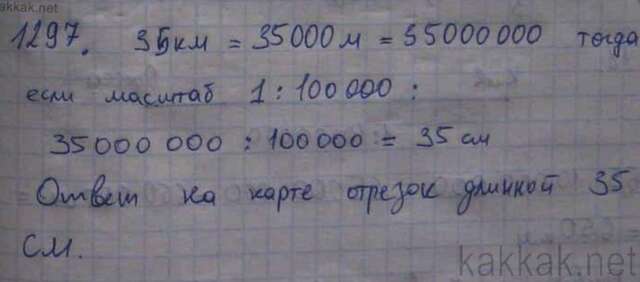 kakkak.net
1297. 35км = 35000м = 35000000 тогда
если масштаб 1 : 100 000 :
35000 000 : 100 000 = 35 см
Ответ на карте отрезок длинной 35
см.
kakkak.net